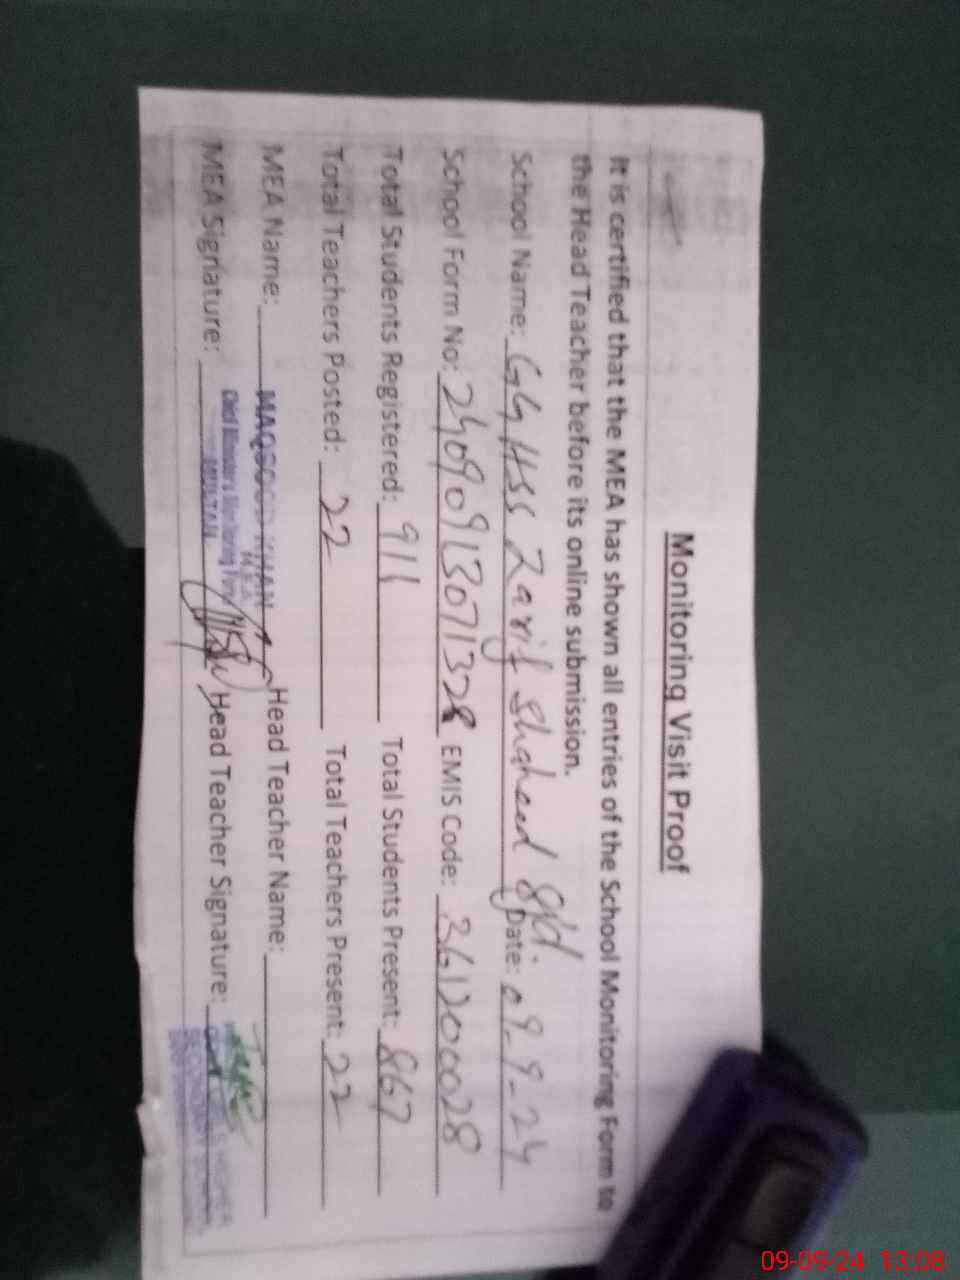 Monitoring Visit Proof
It is certified that the MEA has shown all entries of the School Monitoring Form to
the Head Teacher before its online submission.
School Name: GGHSS Zarif Shaheed Date: 09-9-24
School Form No: 24090913071328 EMIS Code: 36120028
Total Students Registered: 911 Total Students Present: 867
Total Teachers Posted: 22 Total Teachers Present: 22
MEA Name: MAQSOOD KHAN Head Teacher Name:
MEA
Chief Ministers Monitoring Force
MULTAN
MEA Signature: Head Teacher Signature:
HIGHER
SECONDARY SCHOOL
09-09-24 13:08